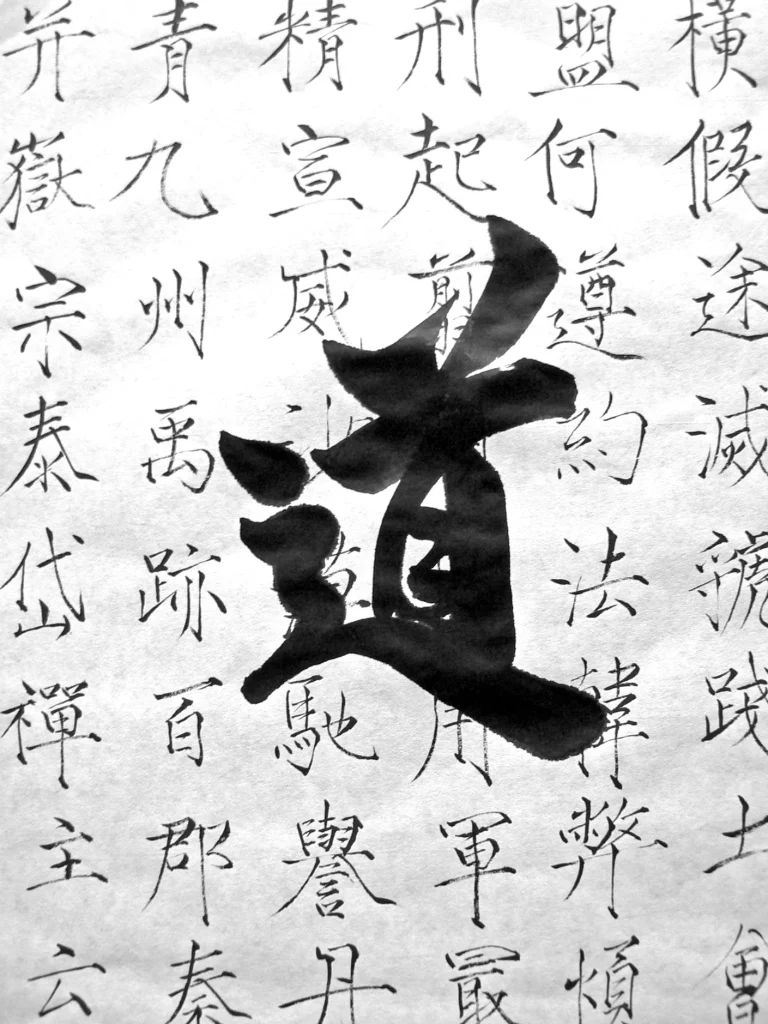 橫假途滅虢踐土會
盟何遵約法韓弊煩
刑起翦用軍最
精宣威沙漠馳譽丹
青九州禹跡百郡秦
并嶽宗泰岱禪主云
道